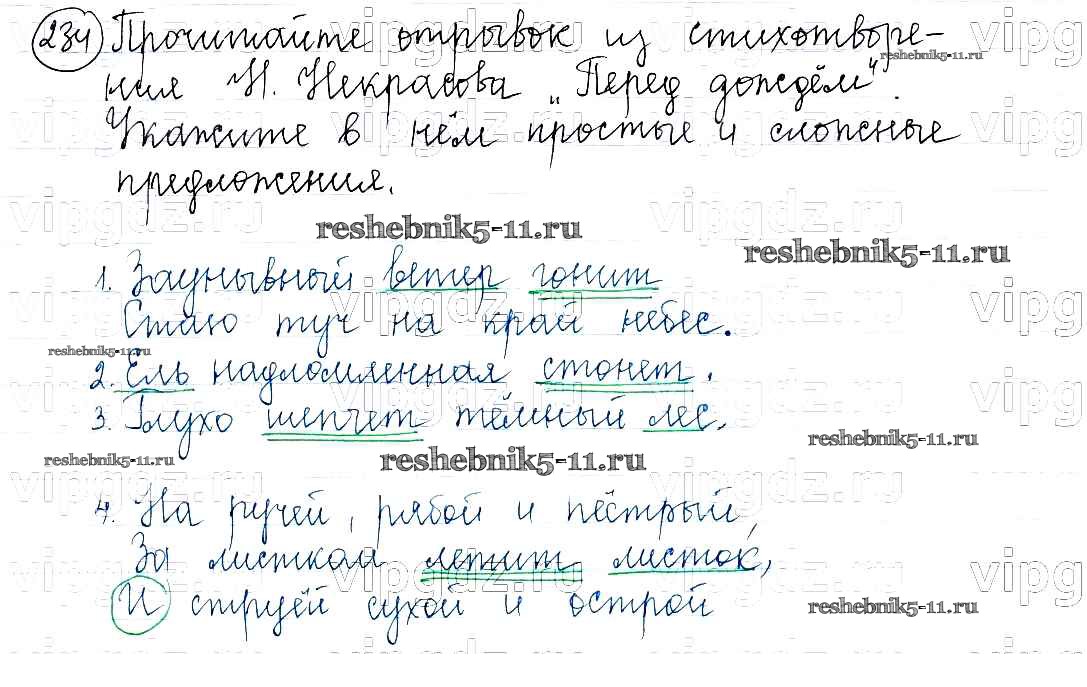 234 Прочитайте отрывок из стихотворе-
ния Н. Некрасова „Перед дождём“.
Укажите в нём простые и сложные
предложения.
vipgdz.ru vipgdz.ru
reshebnik5-11.ru reshebnik5-11.ru
1. Заунывный ветер гонит
Стаю туч на край небес.
reshebnik5-11.ru
2. Ель надломленная стонет.
3. Глухо шепчет тёмный лес.
reshebnik5-11.ru reshebnik5-11.ru reshebnik5-11.ru
4. На ручей, рябой и пёстрый,
За листком летит листок,
И струей сухой и острой
reshebnik5-11.ru